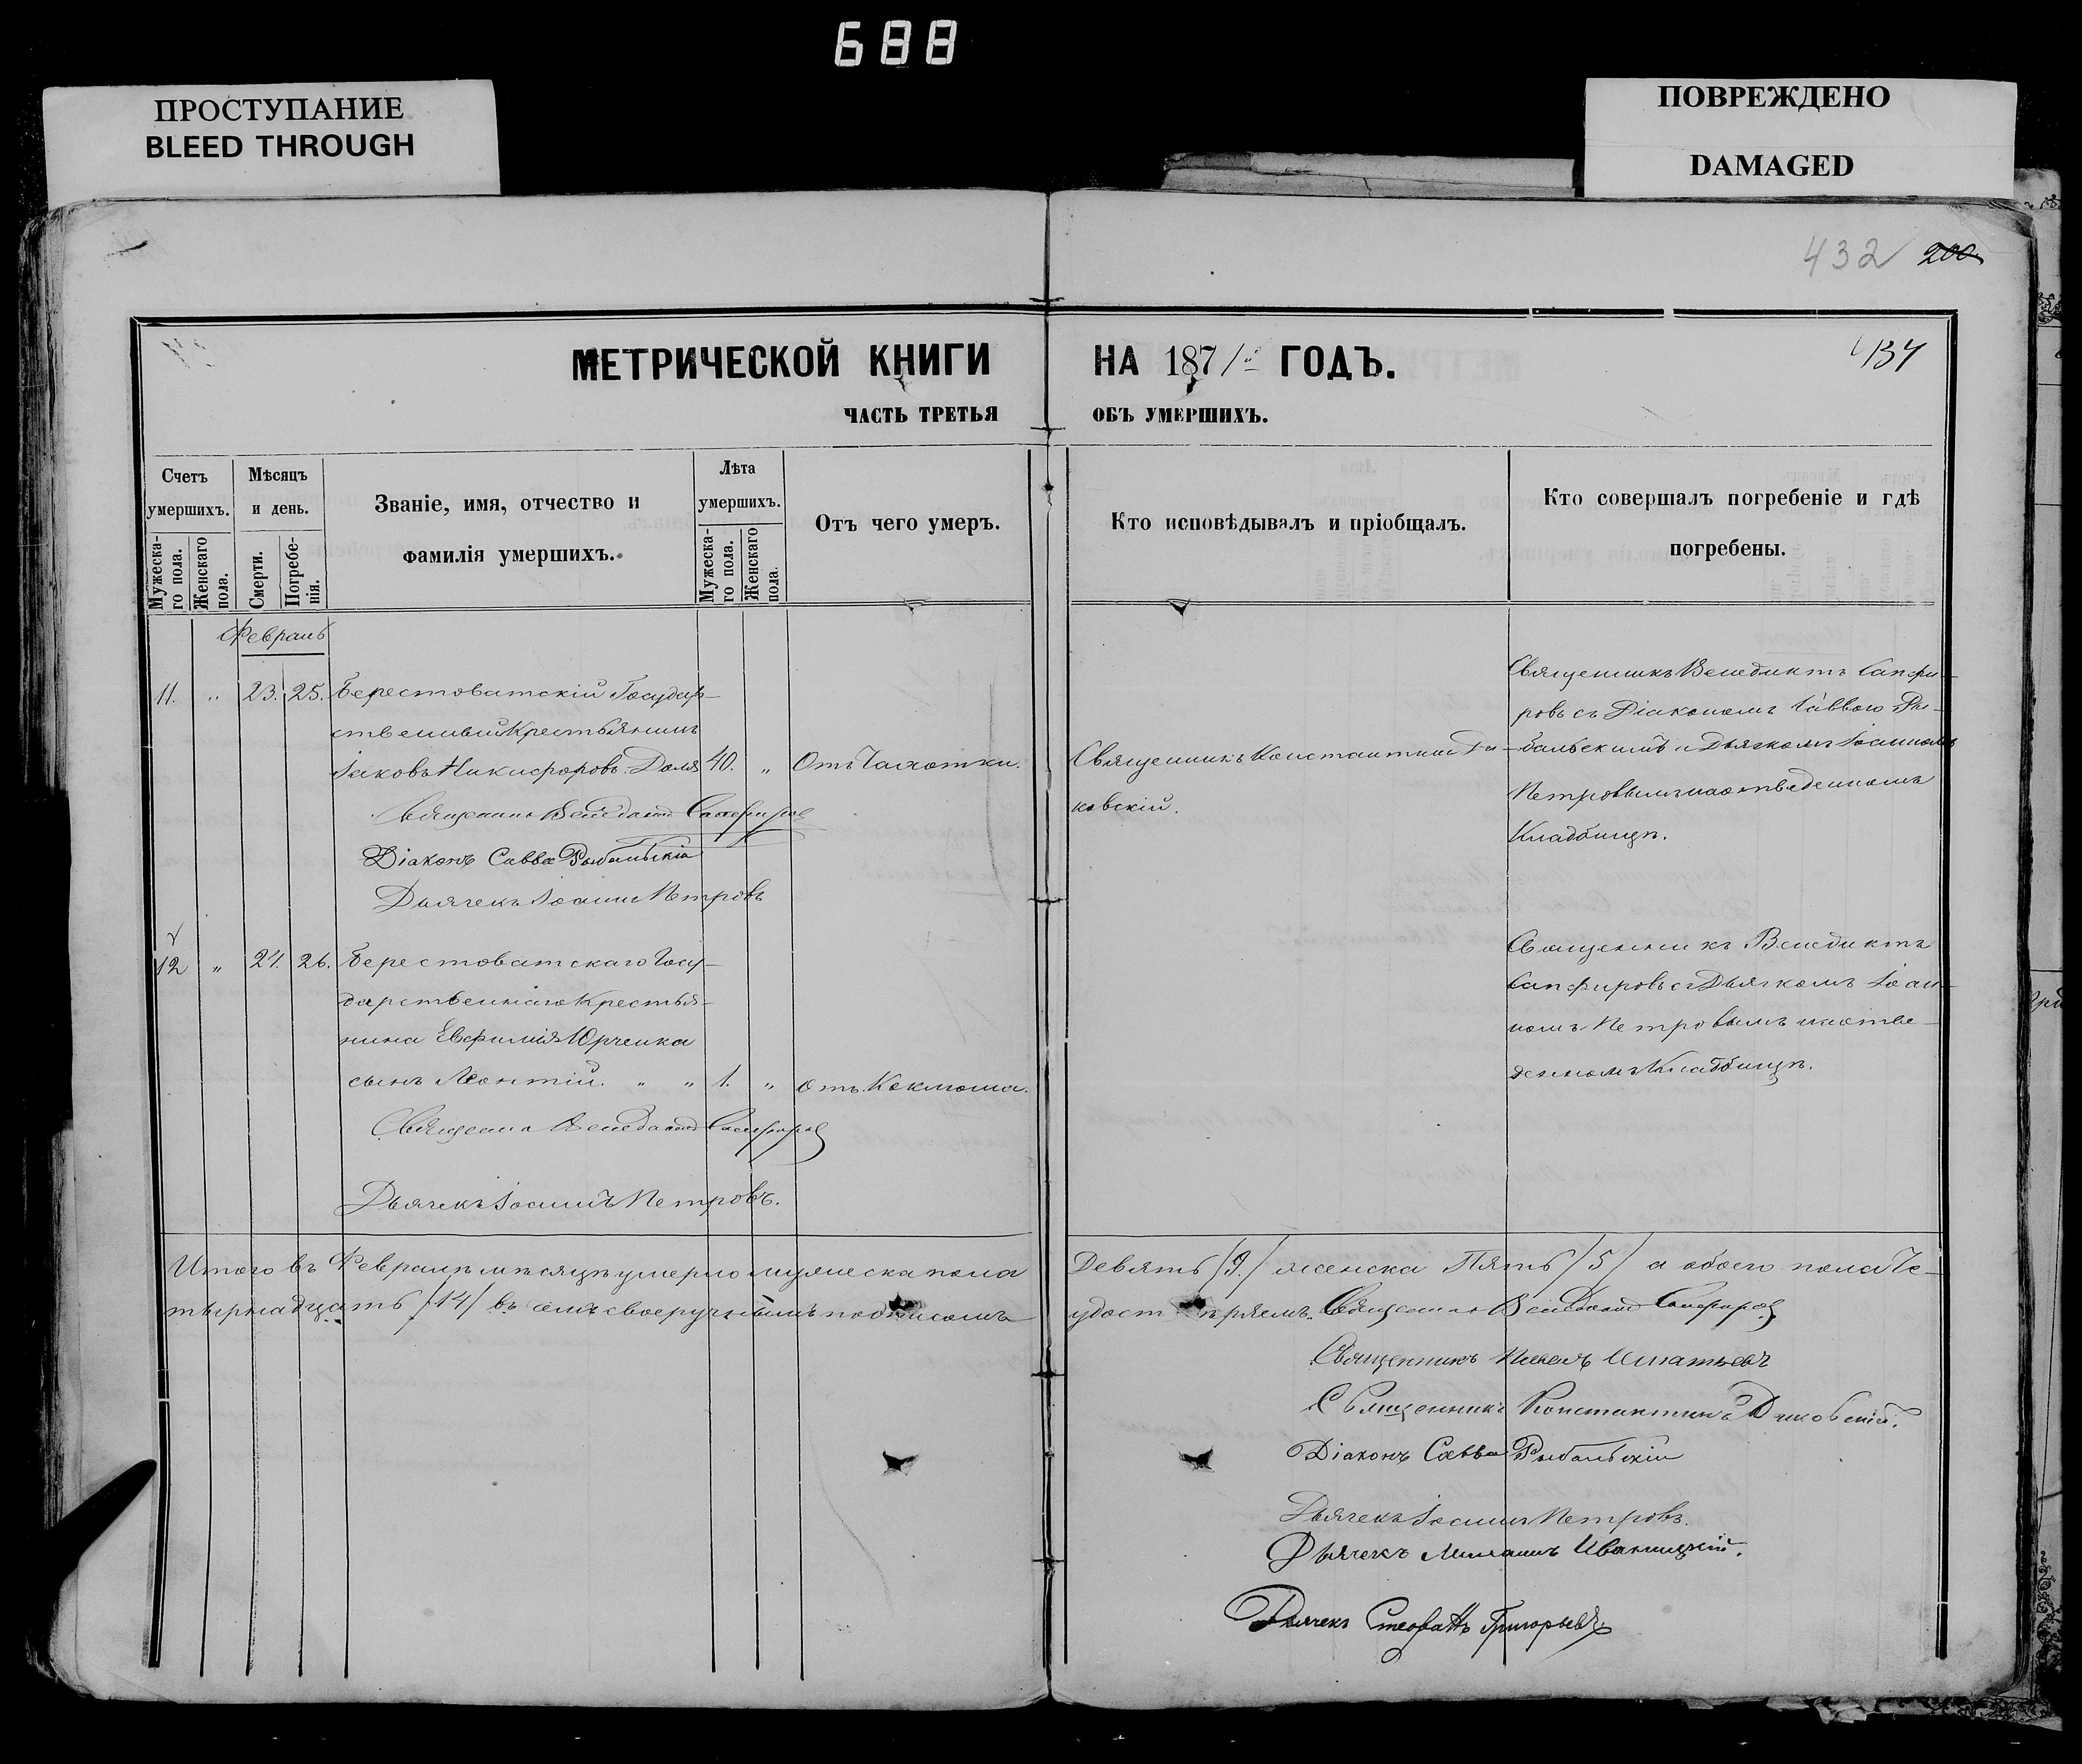 688
ПРОСТУПАНИЕ
BLEED THROUGH
ПОВРЕЖДЕНО
DAMAGED
432 200
434
МЕТРИЧЕСКОЙ КНИГИ НА 1871й ГОДЪ.
ЧАСТЬ ТРЕТЬЯ ОБЪ УМЕРШИХЪ.
Счетъ умершихъ.
Мужеска-го пола.
Женскаго пола.
Мѣсяцъ и день.
Смерти.
Погребе-нія.
Званіе, имя, отчество и
фамилія умершихъ.
Лѣта умершихъ.
Мужеска-го пола.
Женскаго пола.
Отъ чего умеръ.
Кто исповѣдывалъ и пріобщалъ.
Кто совершалъ погребеніе и гдѣ
погребены.
Февраль
11. " 23. 25. Берестоватскій Государ-
ственный Крестьянинъ
Іаковъ Никифоровъ Доля 40. " Отъ Чахотки.
Священникъ Венедиктъ Сапфировъ
Діаконъ Савва Рыбальскій
Дьячекъ Іоаннъ Петровъ
Священникъ Константинъ Ди-
ковскій.
Священникъ Венедиктъ Сапфи-
ровъ съ Діакономъ Саввою Ры-
бальскимъ и Дьячкомъ Іоанномъ
Петровымъ на отведенномъ
Кладбищѣ.
12 " 24. 26. Берестоватскаго Госу-
дарственнаго Крестья-
нина Евфимія Юрченка
сынъ Леонтій. " " 1. " Отъ Коклюша.
Священникъ Венедиктъ Сапфировъ
Дьячекъ Іоаннъ Петровъ.
Священникъ Венедиктъ
Сапфировъ съ Дьячкомъ Іоан-
номъ Петровымъ на отве-
денномъ Кладбищѣ.
Итого въ Февралѣ мѣсяцѣ умерло мужеска пола Девять /9./ женска Пять /5/ а обоего пола Че-
тырнадцать /14/ въ чемъ своеручнымъ подписомъ удостовѣряемъ. Священникъ Венедиктъ Сапфировъ
Священникъ Игнатьевъ
Священникъ Константинъ Диковскій.
Діаконъ Савва Рыбальскій
Дьячекъ Іоаннъ Петровъ.
Дьячекъ Иваницкій.
Дьячекъ Стефанъ Григорьевъ